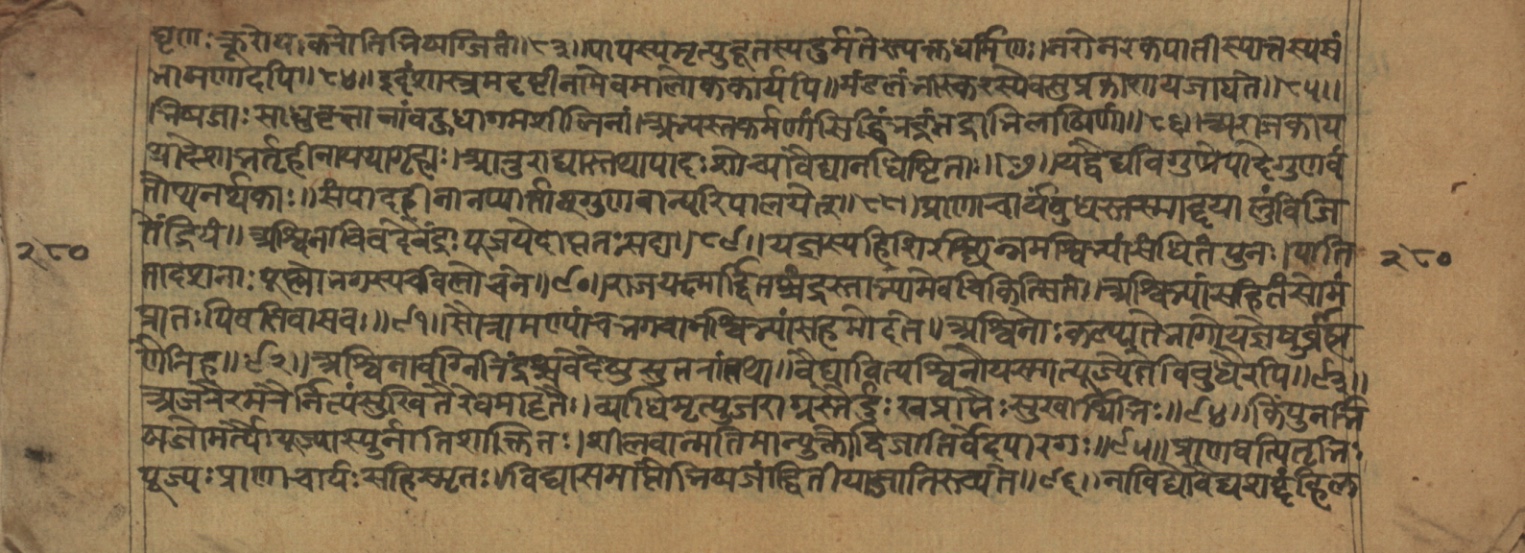 घृणः क्रूरोपि करोति भिषग्जितं॥८३॥पापस्य मृत्युदूतस्य दुर्मतेस्त्यक्तधर्मिणः।नरो नरकपाती स्यात्तस्य सं
भाषणादपि॥८४॥इदं शास्त्रमदृष्टीनामेवमालोककार्यपि॥मंडलं भास्करस्यैव सुप्रकाशाय जायते॥८५॥
भिषजाः साधुवृत्तानां बहुधागमशीलिनां।अभ्यस्तकर्मणां सिद्धिं भद्रं भद्राभिलाषिणां॥८६॥अराजकाय
थादेशा भर्तृहीना यथा गृहाः।आतुराद्यास्तथा पादः शोच्या वैद्यानधिष्टिताः॥८७॥यद्वैद्यविगुणे पादे गुणवं
तोप्यनर्थकाः॥संपादहीनानप्यार्तान्गुणवान्परिपालयेत्॥८८॥प्राणाचार्यं बुधस्तस्माद्दयालुं विजि
तेंद्रियं॥अश्विनाविव देवेंद्रः पूजयेदाप्ततः सदा॥८९॥यज्ञस्य हि शिरश्छिन्नमश्विभ्यां संधितं पुनः।पाति
तादशनाः पूष्णो भगस्य च विलोचने॥९०॥राजयक्ष्मार्दितश्चंद्रस्ताभ्यामेव चिकित्सितः।अश्विभ्यां सहितं सोमं
प्रातः पिबति वासवः॥९१॥सौत्रामण्यां च भगवानश्विभ्यां सह मोदते॥अश्विनोः कल्प्यते भागो यज्ञेषु ब्रह्म
णेनिह॥९२॥अश्विनावग्निमिंद्रश्च वेदेषु सुतनां तथा॥वैद्यावित्यश्विनौ यस्मात्पूज्येते विबुधैरपि॥९३॥
अजरैरमरैर्नित्यं सुखितैरेवमादृतैः।व्याधिमृत्युजराग्रस्तैर्दुःखप्रायैः सुखार्थिभिः॥९४॥किं पुनर्भि
षजोमर्त्यैः पूज्या स्युर्नातिशक्तितः।शीलवान्मतिमान्युक्तो द्विजातिर्वेदपारगः॥९५॥प्राणवत्पितृभिः
पूज्यः प्राणाचार्यः स हि स्मृतः।विद्यासमाप्तौ भिषजां द्वितीया जातिरुच्यते॥९६॥नाविद्यो वैद्यशब्दं हि ल
२८०
२८०